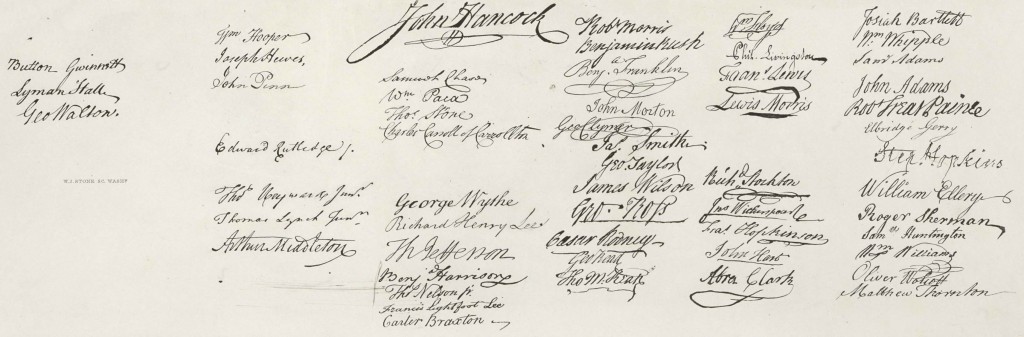 Button Gwinnett
Lyman Hall
Geo Walton.
Wm Hooper
Joseph Hewes,
John Penn
Edward Rutledge /.
Thos Heyward Junr.
Thomas Lynch Junr.
Arthur Middleton
John Hancock
Samuel Chase
Wm. Paca
Thos. Stone
Charles Carroll of Carrollton
George Wythe
Richard Henry Lee
Th Jefferson
Benja Harrison
Thos Nelson jr.
Francis Lightfoot Lee
Carter Braxton
Robt Morris
Benjamin Rush
Benja. Franklin
John Morton
Geo Clymer
Jas. Smith
Geo. Taylor
James Wilson
Geo. Ross
Caesar Rodney
Geo Read
Tho M:Kean
Wm Floyd
Phil. Livingston
Frans. Lewis
Lewis Morris
Richd. Stockton
Jno Witherspoon
Fras. Hopkinson
John Hart
Abra Clark
Josiah Bartlett
Wm. Whipple
Saml Adams
John Adams
Robt Treat Paine
Elbridge Gerry
Step. Hopkins
William Ellery
Roger Sherman
Saml. Huntington
Wm. Williams
Oliver Wolcott
Matthew Thornton
W.J. STONE SC. WASHN.